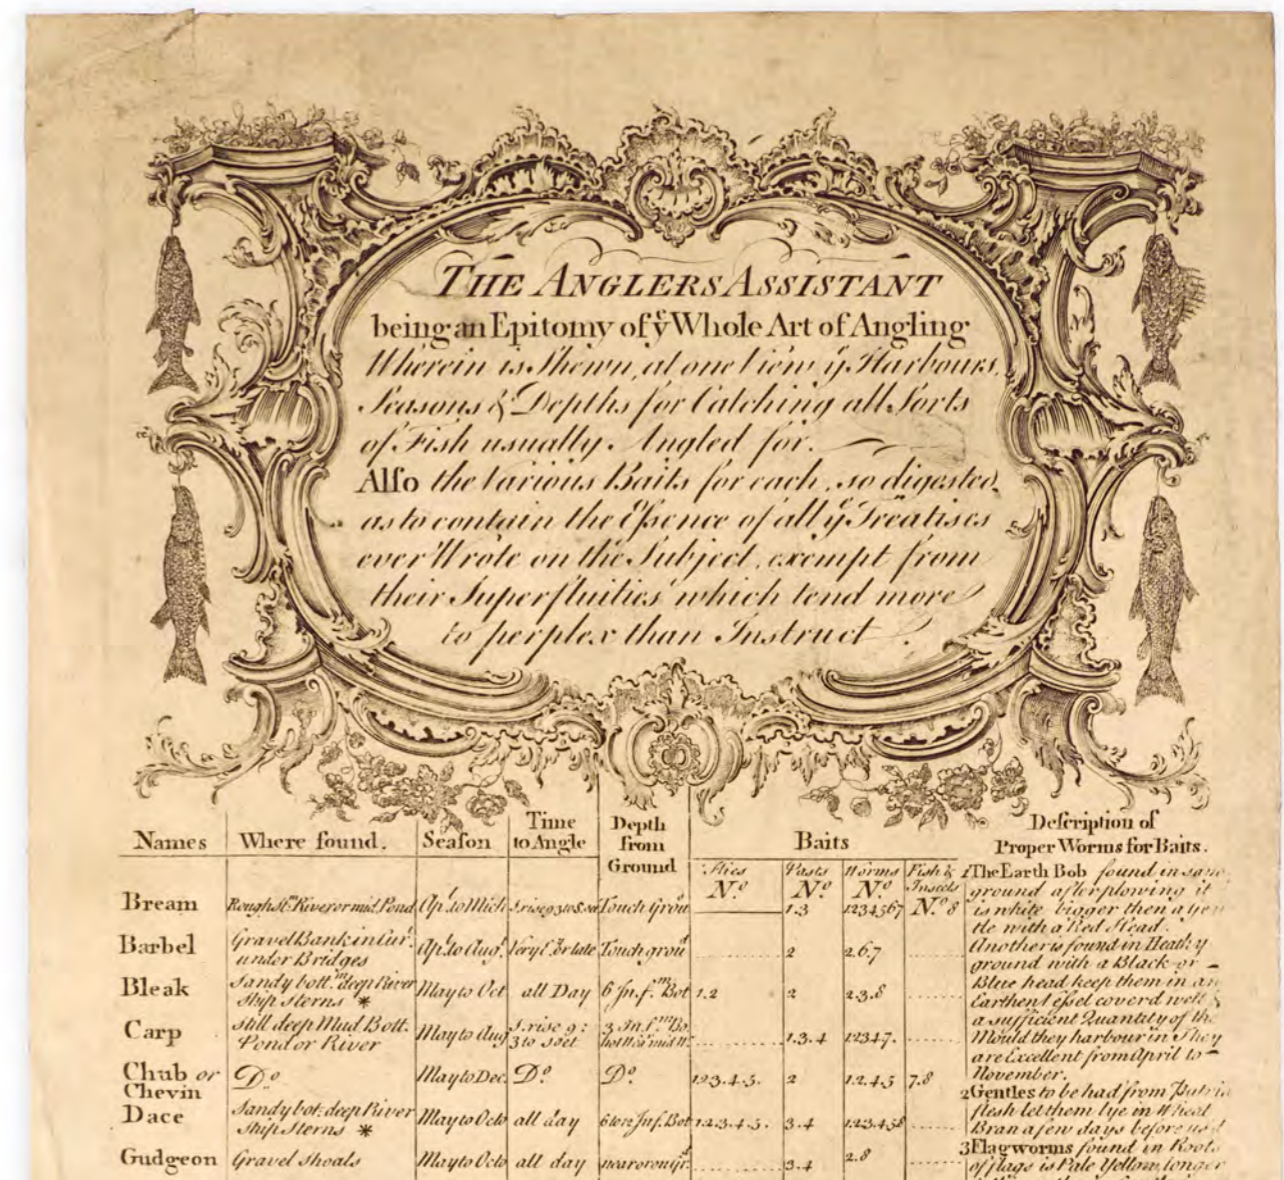 THE ANGLERS ASSISTANT
being an Epitomy of yͤ Whole Art of Angling
Wherein is Shewn, at one View yͤ Harbours,
Seasons & Depths for Catching all Sorts
of Fish usually Angled for.
Alſo the Various Baits for each, so digested,
as to contain the Eſsence of all yͤ Treatises
ever Wrote on the Subject, exempt from
their Superfluities which tend more
to perplex than Instruct.
Names Where found. Seaſon Time to Angle Depth from Ground Baits Deſcription of Proper Worms for Baits.
Flies Nº Pasts Nº Worms Nº Fish & Insects Nº 8
Bream Rough stᵐ River or mid Pond Apˡ to Mich S. rise 9 3 to S. set Touch Groud 1.3 1234567
Barbel Gravel Bank in Cur. under Bridges Apˡ to Augᵗ Very E. or late Touch groud 2 2.6.7
Bleak Sandy bottᵐ deep River Ship Sterns * May to Oct all Day 6 In. fᵐ Bot 1.2 2 2.3.8
Carp still deep Mud Bott. Pond or River May to Aug S. rise 9: 3 to S set 3 In fᵐ Bo. 1.3.4 12347.
Chub or Chevin Dº May to Dec. Dº Dº 1.2.3.4.5. 2 1.2.4.5 7.8
Dace Sandy bot: deep River Ship Sterns * May to Octo all day 6 to 12 In f. Bot 1.2.3.4.5. 3.4 1.2.3.4.5.8
Gudgeon Gravel Shoals May to Octo all day near or on Gr. 3.4 2.8
1 The Earth Bob found in
ground after plowing it
is white bigger then a
tle with a Red Head.
Another is found in Heathy
ground with a Black or
Blue head keep them in an
Earthen Veſsel coverd well &
a sufficient Quantity of the
Mould they harbour in They
are Excellent from April to
November.
2 Gentles to be had from
flesh let them lye in Wheat
Bran a few days before
3 Flagworms found in Roots
of flags is Pale Yellow, longer